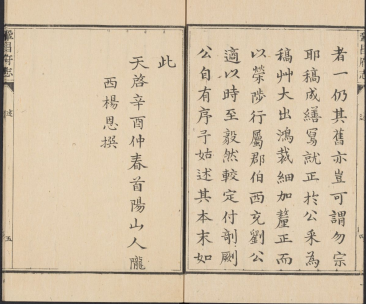 者一仍其舊亦豈可謂勿宗
耶稿成繕寫就正於公采為
稿艸大出鴻裁細加釐正而
以榮陟行屬郡伯西充劉公
適以時至毅然較定付剞劂
公自有序予姑述其本末如
此
天啓辛酉仲春首陽山人隴
西楊恩撰
五